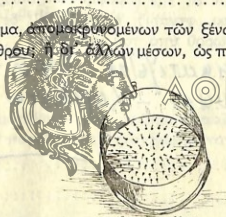 μα, ἀπομακρυνομένων τῶν ξένω
θρου; ἢ δι' ἄλλων μέσων, ὡς π
ΑΘ